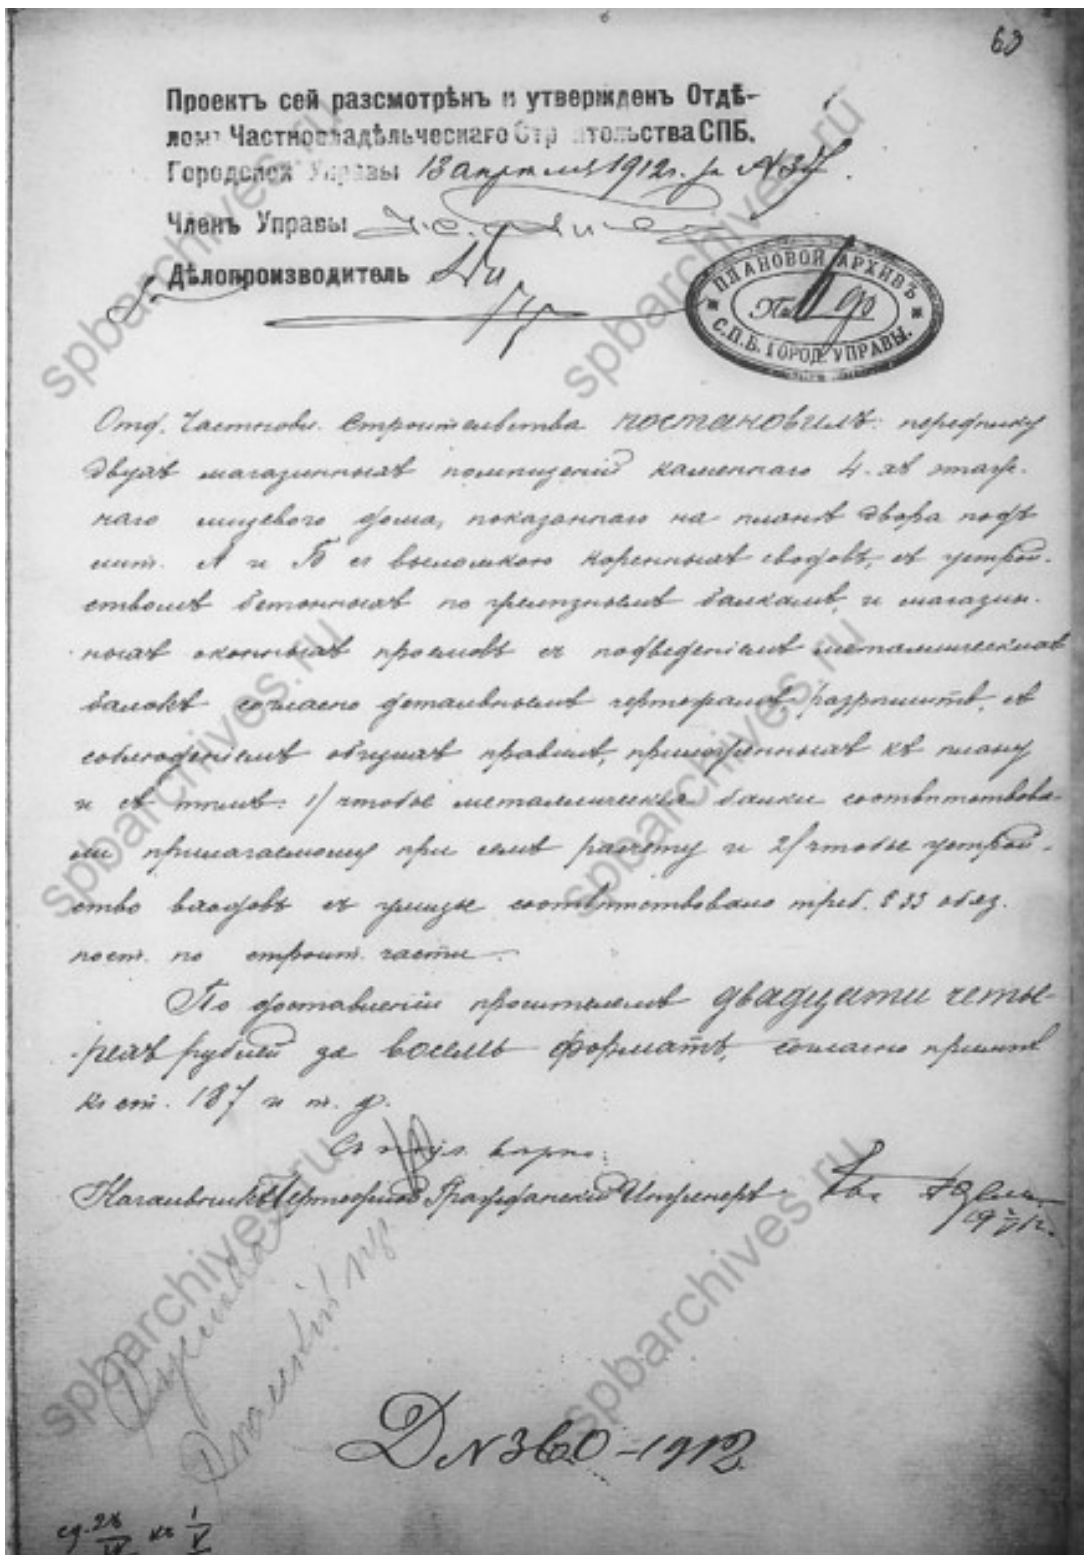 63
Проектъ сей разсмотрѣнъ и утвержденъ Отдѣ-
ломъ Частновладѣльческаго Строительства СПБ.
Городской Управы 13 апрѣля 1912г. за № 37
Членъ Управы
Дѣлопроизводитель
ПЛАНОВОЙ АРХИВЪ
С.П.Б. ГОРОД. УПРАВЫ.
Отд. Частнов. Строительства постановилъ: передѣлку
двухъ магазинныхъ помѣщеній каменнаго 4-хъ этаж-
наго лицевого дома, показаннаго на планѣ двора подъ
лит. А и Б съ выломкою коренныхъ сводовъ, съ устрой-
ствомъ бетонныхъ по желѣзнымъ балкамъ, и магазин-
ныхъ оконныхъ проемовъ съ подведеніемъ металлическихъ
балокъ согласно детальнымъ чертежамъ, разрѣшить, съ
соблюденіемъ общихъ правилъ, приложенныхъ къ плану
и съ тѣмъ: 1/ чтобы металлическія балки соотвѣтствова-
ли прилагаемому при семъ расчету и 2/ чтобы устрой-
ство входовъ съ улицы соотвѣтствовало треб. § 33 обяз.
пост. по строит. части.
По доставленіи просителемъ двадцати четы-
рехъ рублей за восемь форматъ, согласно примѣч.
къ ст. 187 и т. д.
Съ подл. вѣрно:
Начальникъ Чертежной Гражданскій Инженеръ
Д № 360-1912
spbarchives.ru
spbarchives.ru
spbarchives.ru
spbarchives.ru
spbarchives.ru
spbarchives.ru